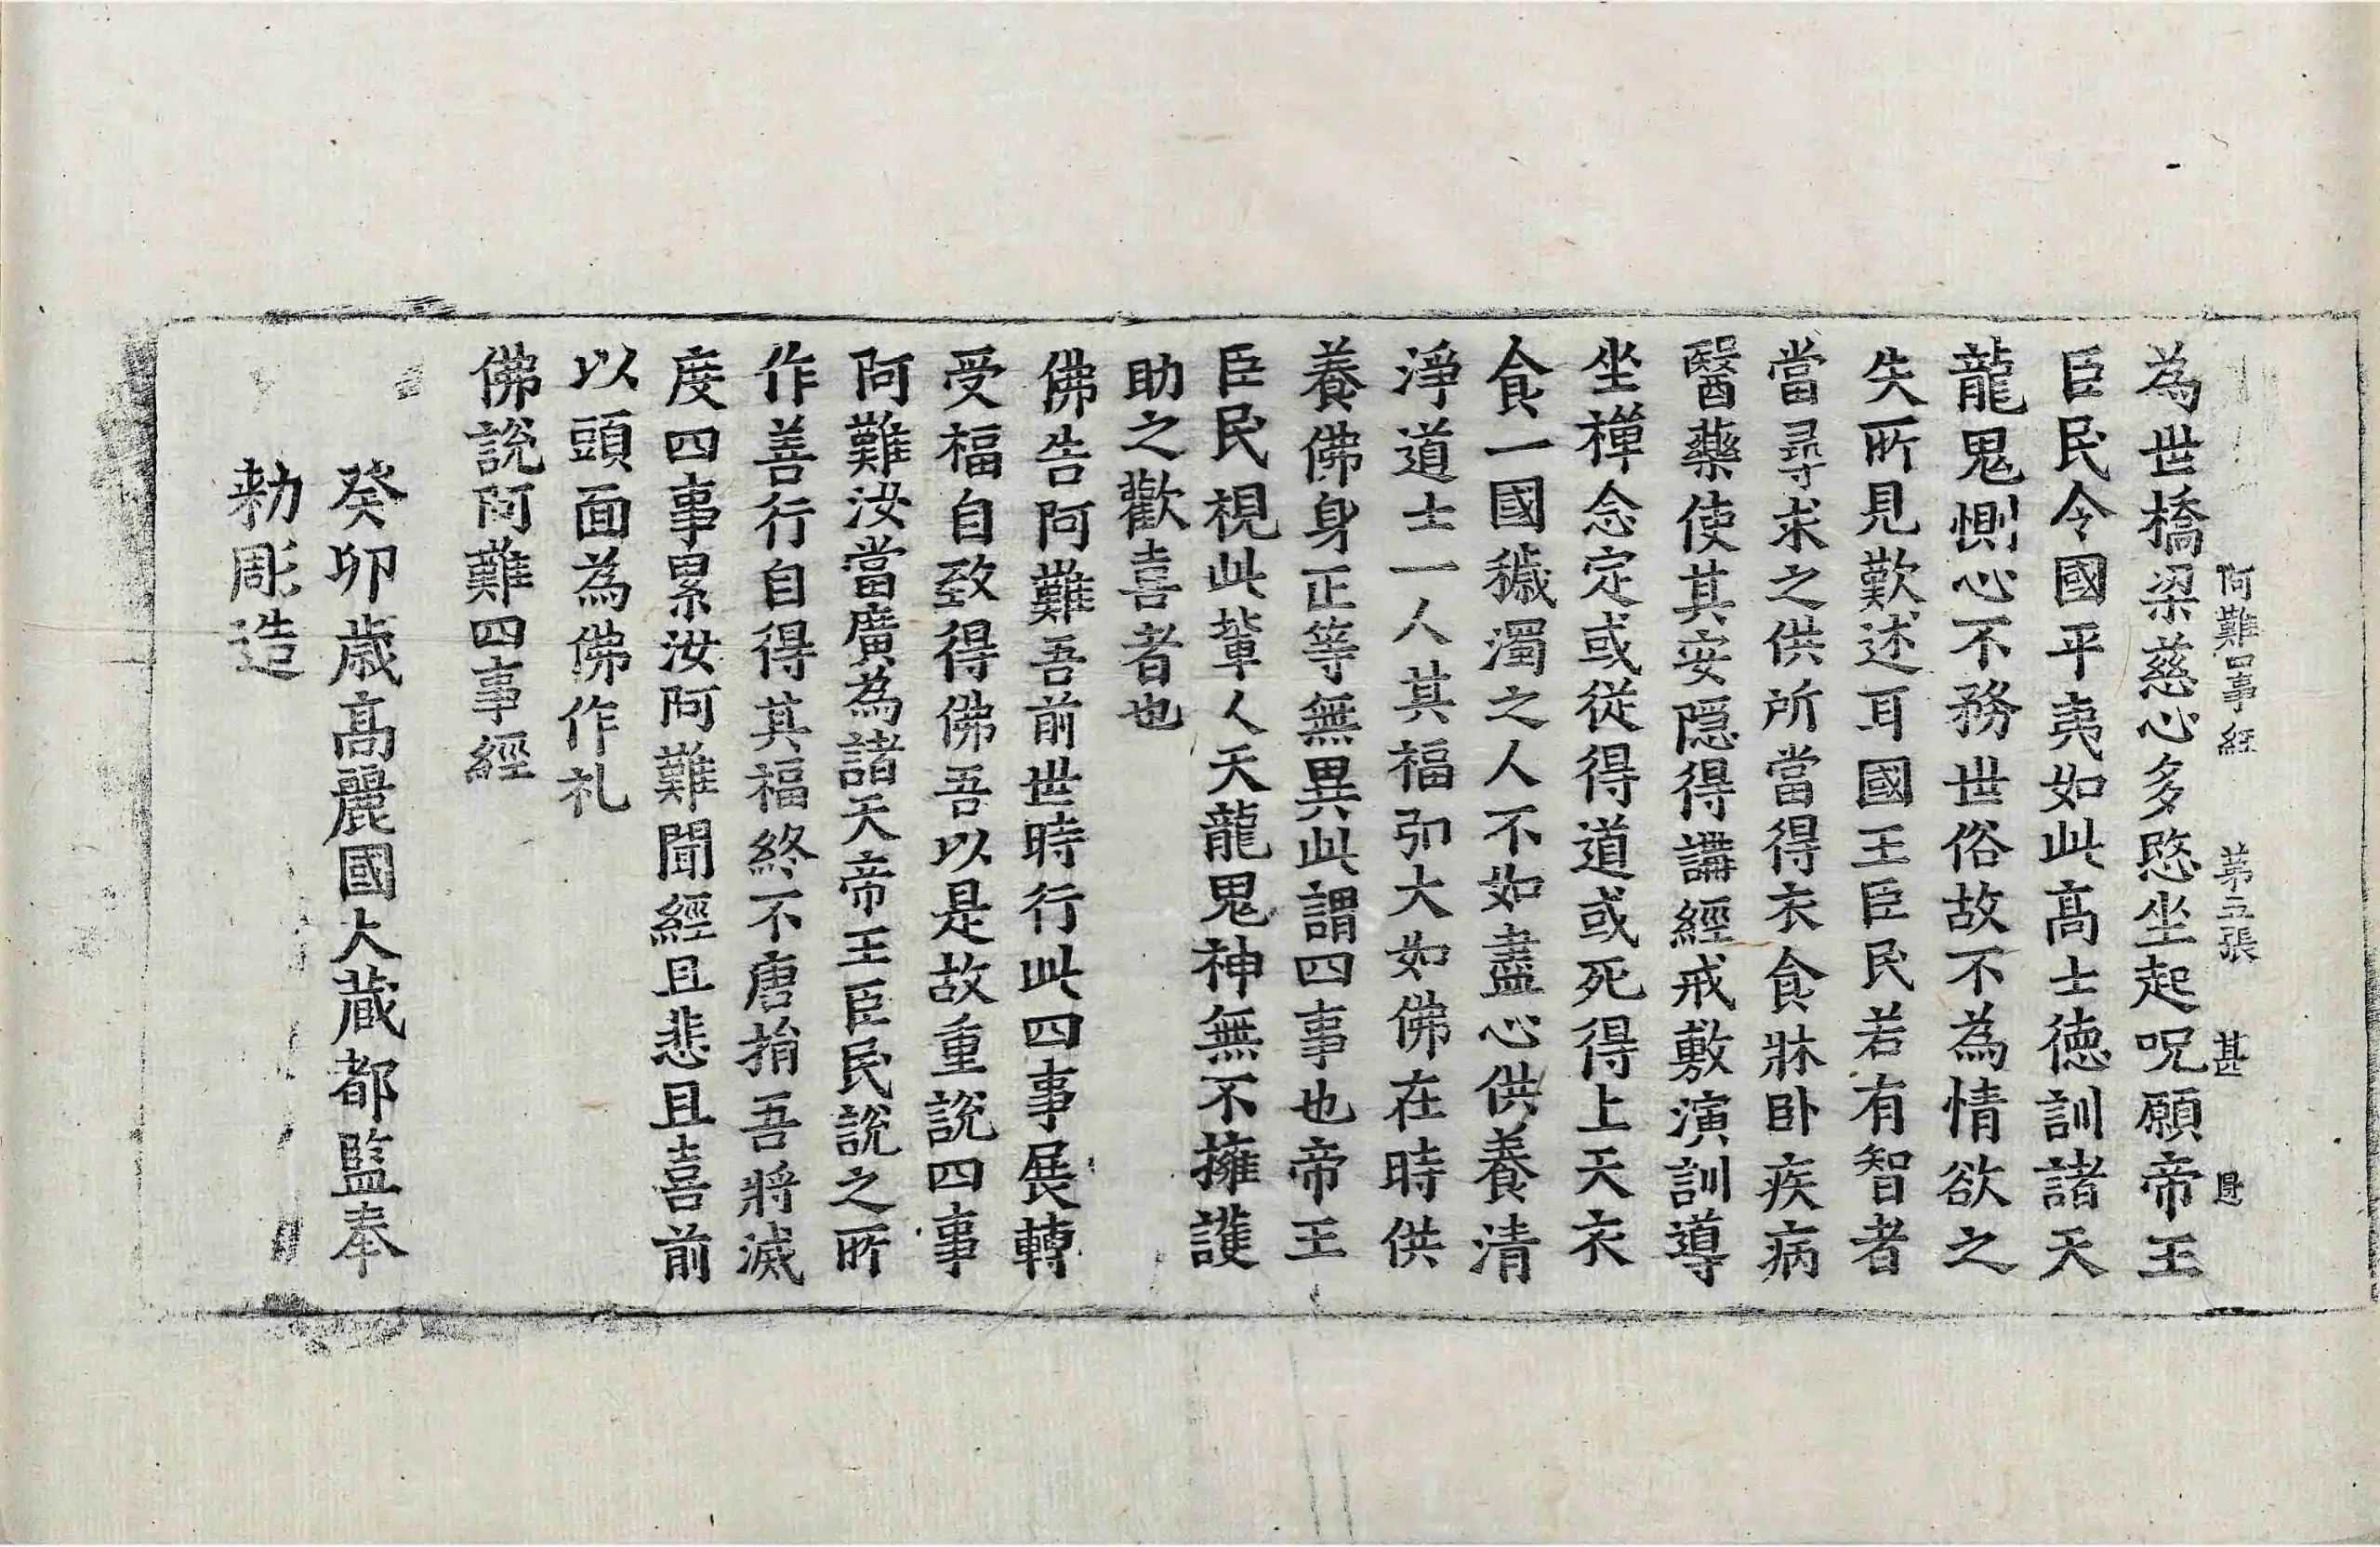 阿難四事經 第五張 甚
為世橋梁慈心多愍坐起呪願帝王
臣民令國平夷如此髙士德訓諸天
龍鬼惻心不務世俗故不為情欲之
失所見歎述耳國王臣民若有智者
當尋求之供所當得衣食牀卧疾病
醫藥使其安隱得講經戒敷演訓導
坐禪念定或從得道或死得上天衣
食一國穢濁之人不如盡心供養清
淨道士一人其福弘大如佛在時供
養佛身正等無異此謂四事也帝王
臣民視此輩人天龍鬼神無不擁護
助之歡喜者也
佛告阿難吾前世時行此四事展轉
受福自致得佛吾以是故重說四事
阿難汝當廣為諸天帝王臣民說之所
作善行自得其福終不唐捐吾將滅
度四事累汝阿難聞經且悲且喜前
以頭面為佛作礼
佛說阿難四事經
癸卯歲髙麗國大藏都監奉
勑彫造